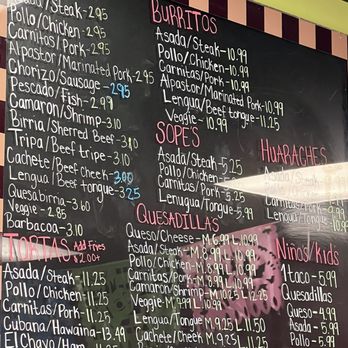 Asada/Steak-2.95
Pollo/Chicken-2.95
Carnitas/Pork-2.95
Alpastor/Marinated Pork-2.95
Chorizo/Sausage-2.95
Pescado/Fish-2.99
Camaron/Shrimp-3.10
Birria/Sherred Beef-3.10
Tripa/Beef tripe-3.10
Cachete/Beef cheek-3.00
Lengua/Beef tongue-3.25
Quesabirria-3.60
Veggie-2.85
Barbacoa-3.10
TORTAS Add Fries $2.00+
Asada/Steak-11.25
Pollo/Chicken-11.25
Carnitas/Pork-11.25
Cubana/Hawaina-13.49
El Chavo/Ham
BURRITOS
Asada/Steak-10.99
Pollo/Chicken-10.99
Carnitas/Pork-10.99
Alpastor/Marinated Pork-10.99
Lengua/Beef tongue-11.25
Veggie-10.99
SOPE'S
Asada/Steak-5.25
Pollo/Chicken-5.25
Carnitas/Pork-5.25
Lengua/Tongue-5.99
QUESADILLAS
Queso/Cheese-M.6.99 L.10.99
Asada/Steak-M.8.99 L.10.99
Pollo/Chicken-M.8.99 L.10.99
Carnitas/Pork-M.8.99 L.10.99
Camaron/Shrimp-M.10.25 L.12.25
Veggie-M.7.99 L.10.99
Lengua/Tongue M.9.25 L.11.50
Cachete/Cheek M.9.25 L
HUARACHES
Asada/Steak
Pollo/Chicken
Carnitas/Pork
Lengua/Tongue
Niños/Kids
1 taco-5.99
Quesadillas
Queso-4.99
Asada-5.99
Pollo-5.99